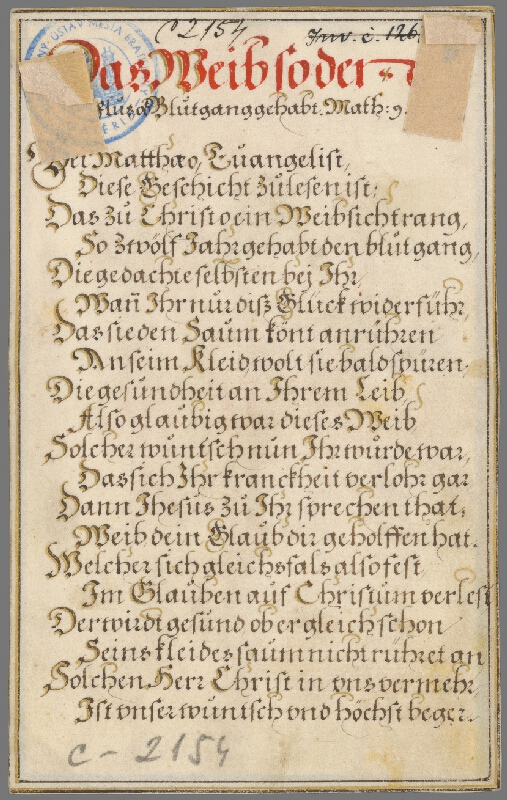 C 2154
Inv. č. 126.
Das Weib so der
Blutgang gehabt. Math: 9.
Bei Matthæo, Euangelist,
Diese Geschicht zu lesen ist:
Das zu Christo ein Weib sich trang,
So zwölf Jahr gehabt den blutgang,
Die gedachte selbsten bej Ihr,
Wan̄ Ihr nur diß Glück widerführ,
Das sie den Saum könt anrühren
An seim Kleid wolt sie bald spüren,
Die gesundheit an Ihrem Leib,
Also glaubig war dieses Weib
Solcher wuntsch nun Ihr wurde war,
Das sich Ihr kranckheit verlohr gar
Dann Jhesus zu Ihr sprechen that,
Weib dein Glaub dir geholffen hat.
Welcher sich gleichsfals also fest
Im Glauben auf Christum verlest
Der wirdt gesund ob er gleich schon
Seins kleides saum nicht rühret an
Solchen Herr Christ in vns vermehr,
Ist vnser wuntsch vnd höchst beger.
C - 2154